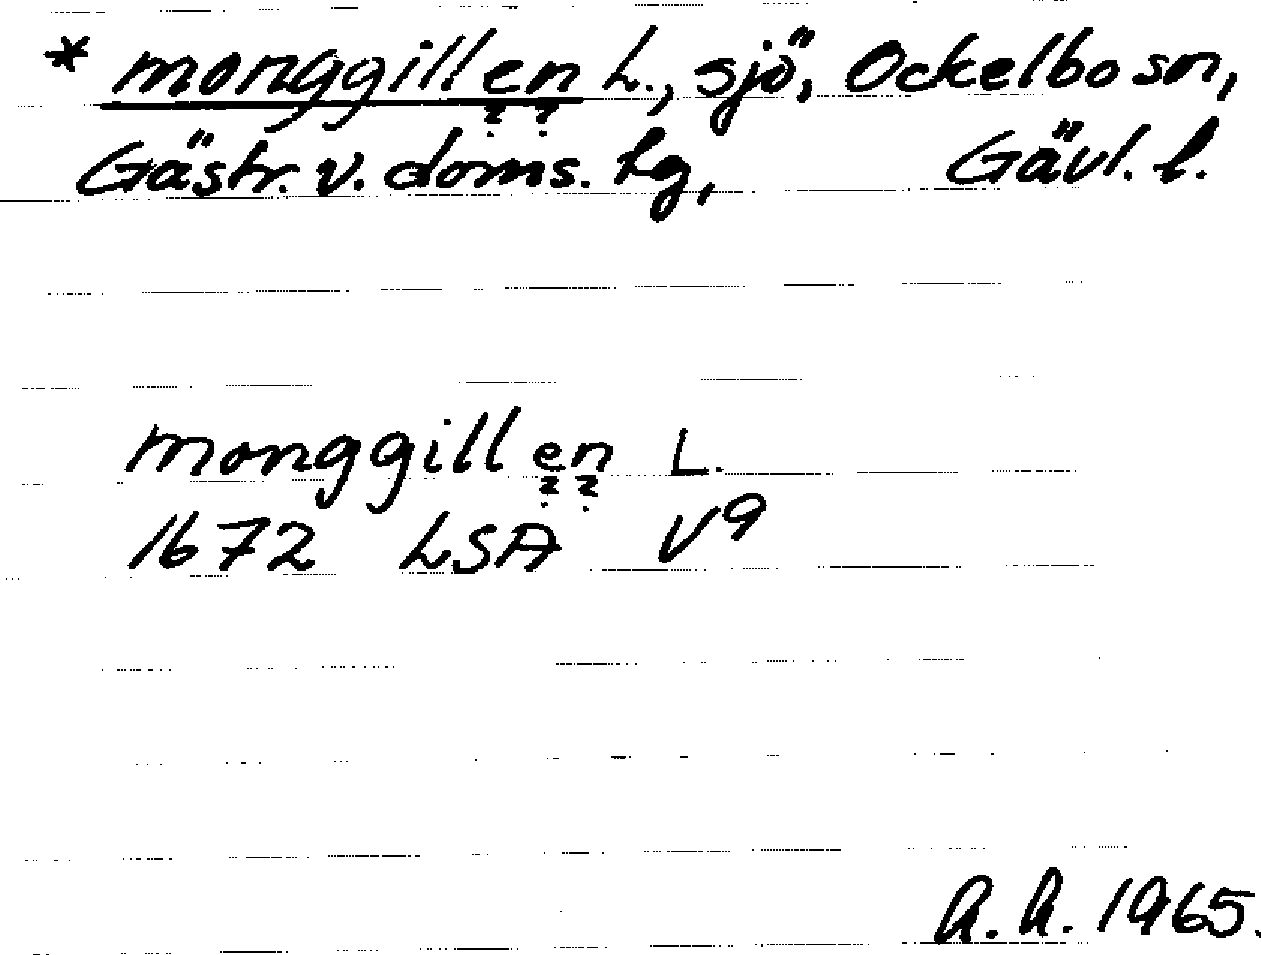 * monggillen L., sjö, Ockelbo sn,
? ?
Gästr. v. doms. hg, Gävl. l.
monggillen L.
? ?
1672 LSA V9
A. A. 1965.